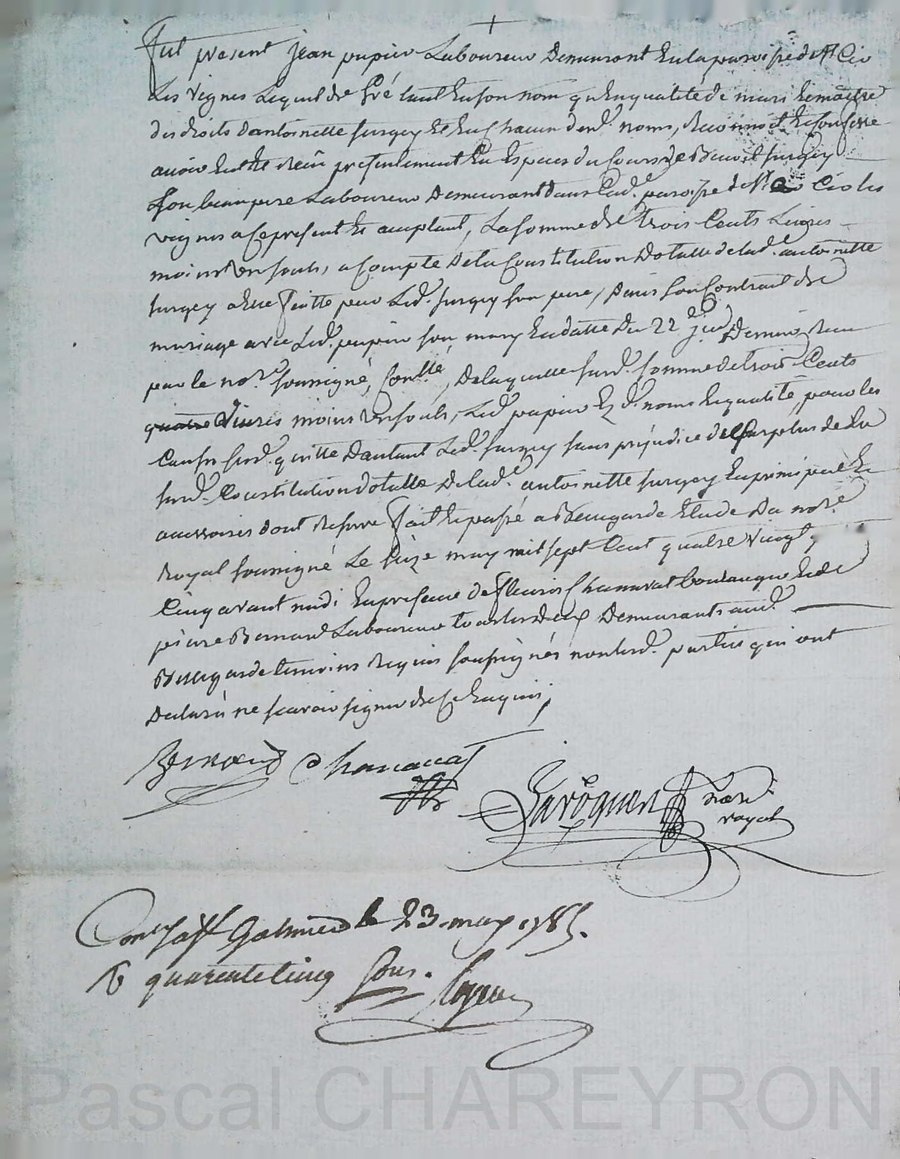 fut présent jean pupier Laboureur Demeurant En la paroisse de st. Cir
Les vignes Lequel de gré tant En son nom qu'En qualité de mari Et maître
des droits d'antoinette surgey Et En Chacun desd. noms, Reconnoit Et Confesse
avoir Eu Et Reçu présentement En Especes du Cours de surgey
son beaupere Laboureur Demeurant dans lad. paroisse de st. Cir les
vignes a ce présent Et acceptant, La somme de trois Cents Livres
moins sols, a Compte de la Constitution Dotalle de lad. antoinette
surgey a Elle faitte par Led. surgey son pere, Dans son Contrat de
mariage avec Led. pupier son mary En datte Du 22 Dernier, Reçu
par le not. soussigné, De laquelle susd. somme de trois Cents
quatre Livres moins sols, Led. pupier Ez d. noms Et qualité, pour les
Causes susd. quitte D'autant Led. surgey sans préjudice du surplus de La
susd. Constitution dotalle De lad. antoinette surgey En principal Et
accessoires dont Réserve fait Et passé a Beauregard Etude Du not.
Royal soussigné Le seize may mil sept Cent quatre vingt
Cinq avant midi En présence de fleuris Chanavat boulanger Et de
pierre Bernard Laboureur tous les deux Demeurants aud.
Beauregard temoins Requis soussignés non lesd. parties qui ont
Déclaré ne scavoir signer de ce Enquis
Bernard Chanavat
not. royal
Con.lé a st Galmier le 23 may 1785.
R quarente cinq sous.
Pascal CHAREYRON